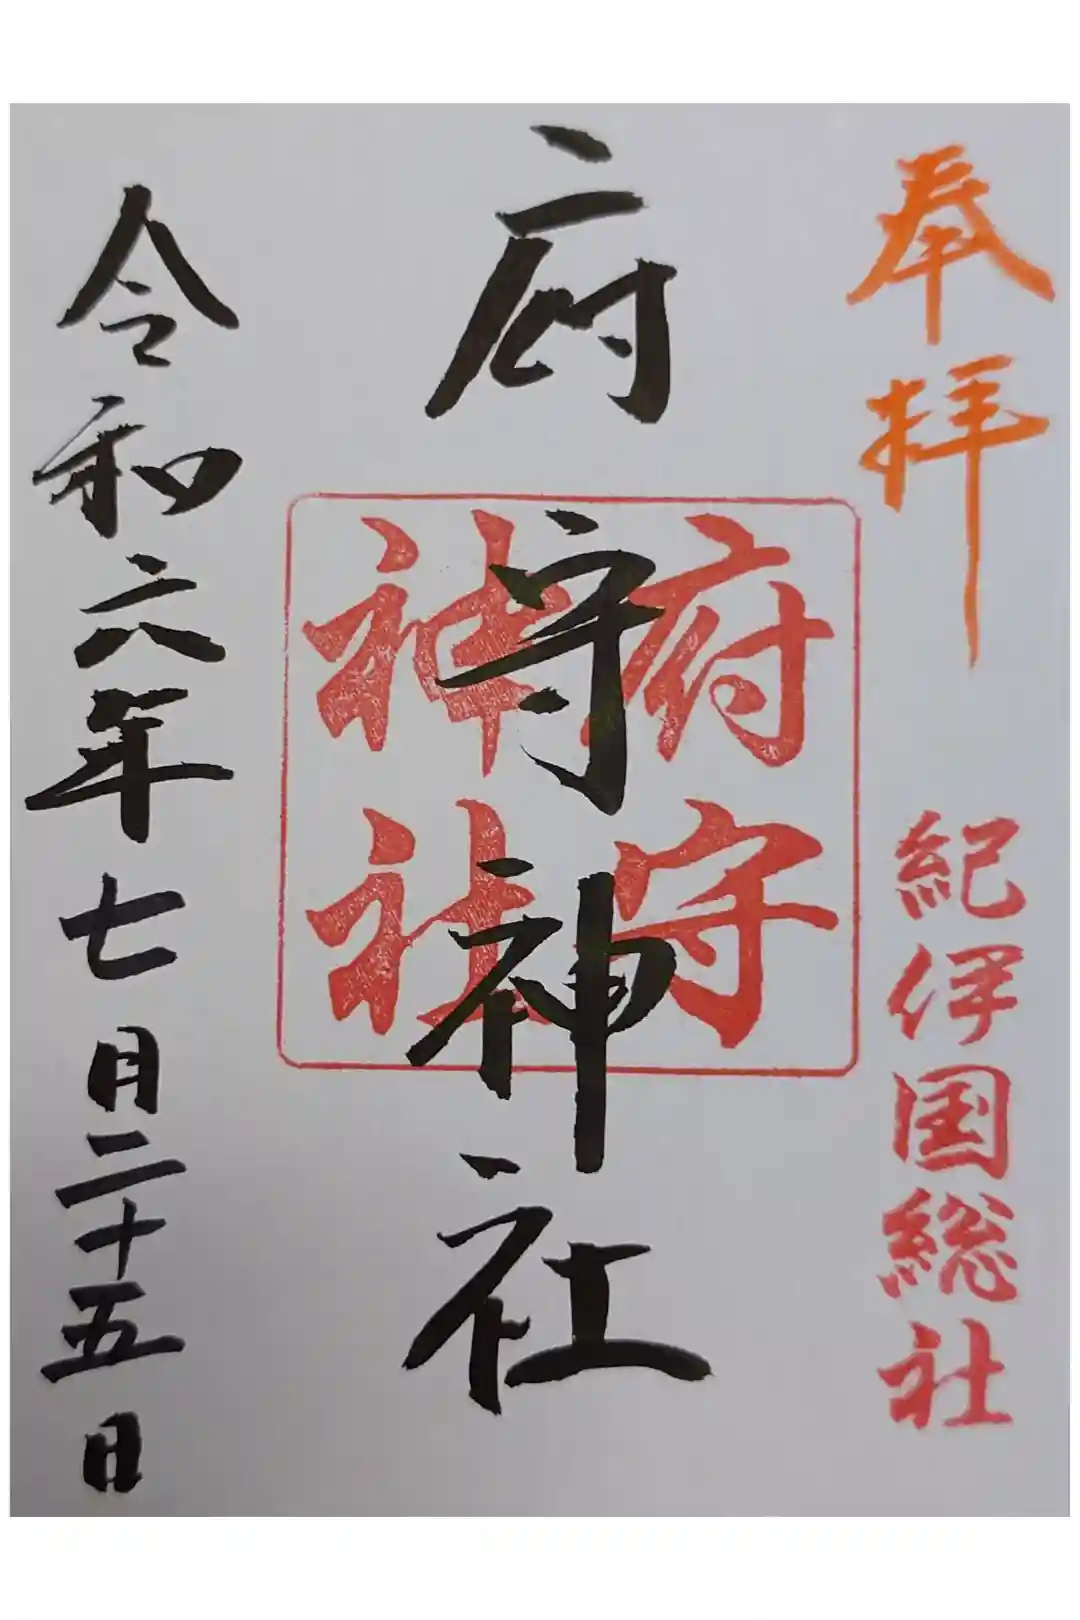 奉拝
紀伊国総社
府守神社
府守
神社
令和六年七月二十五日